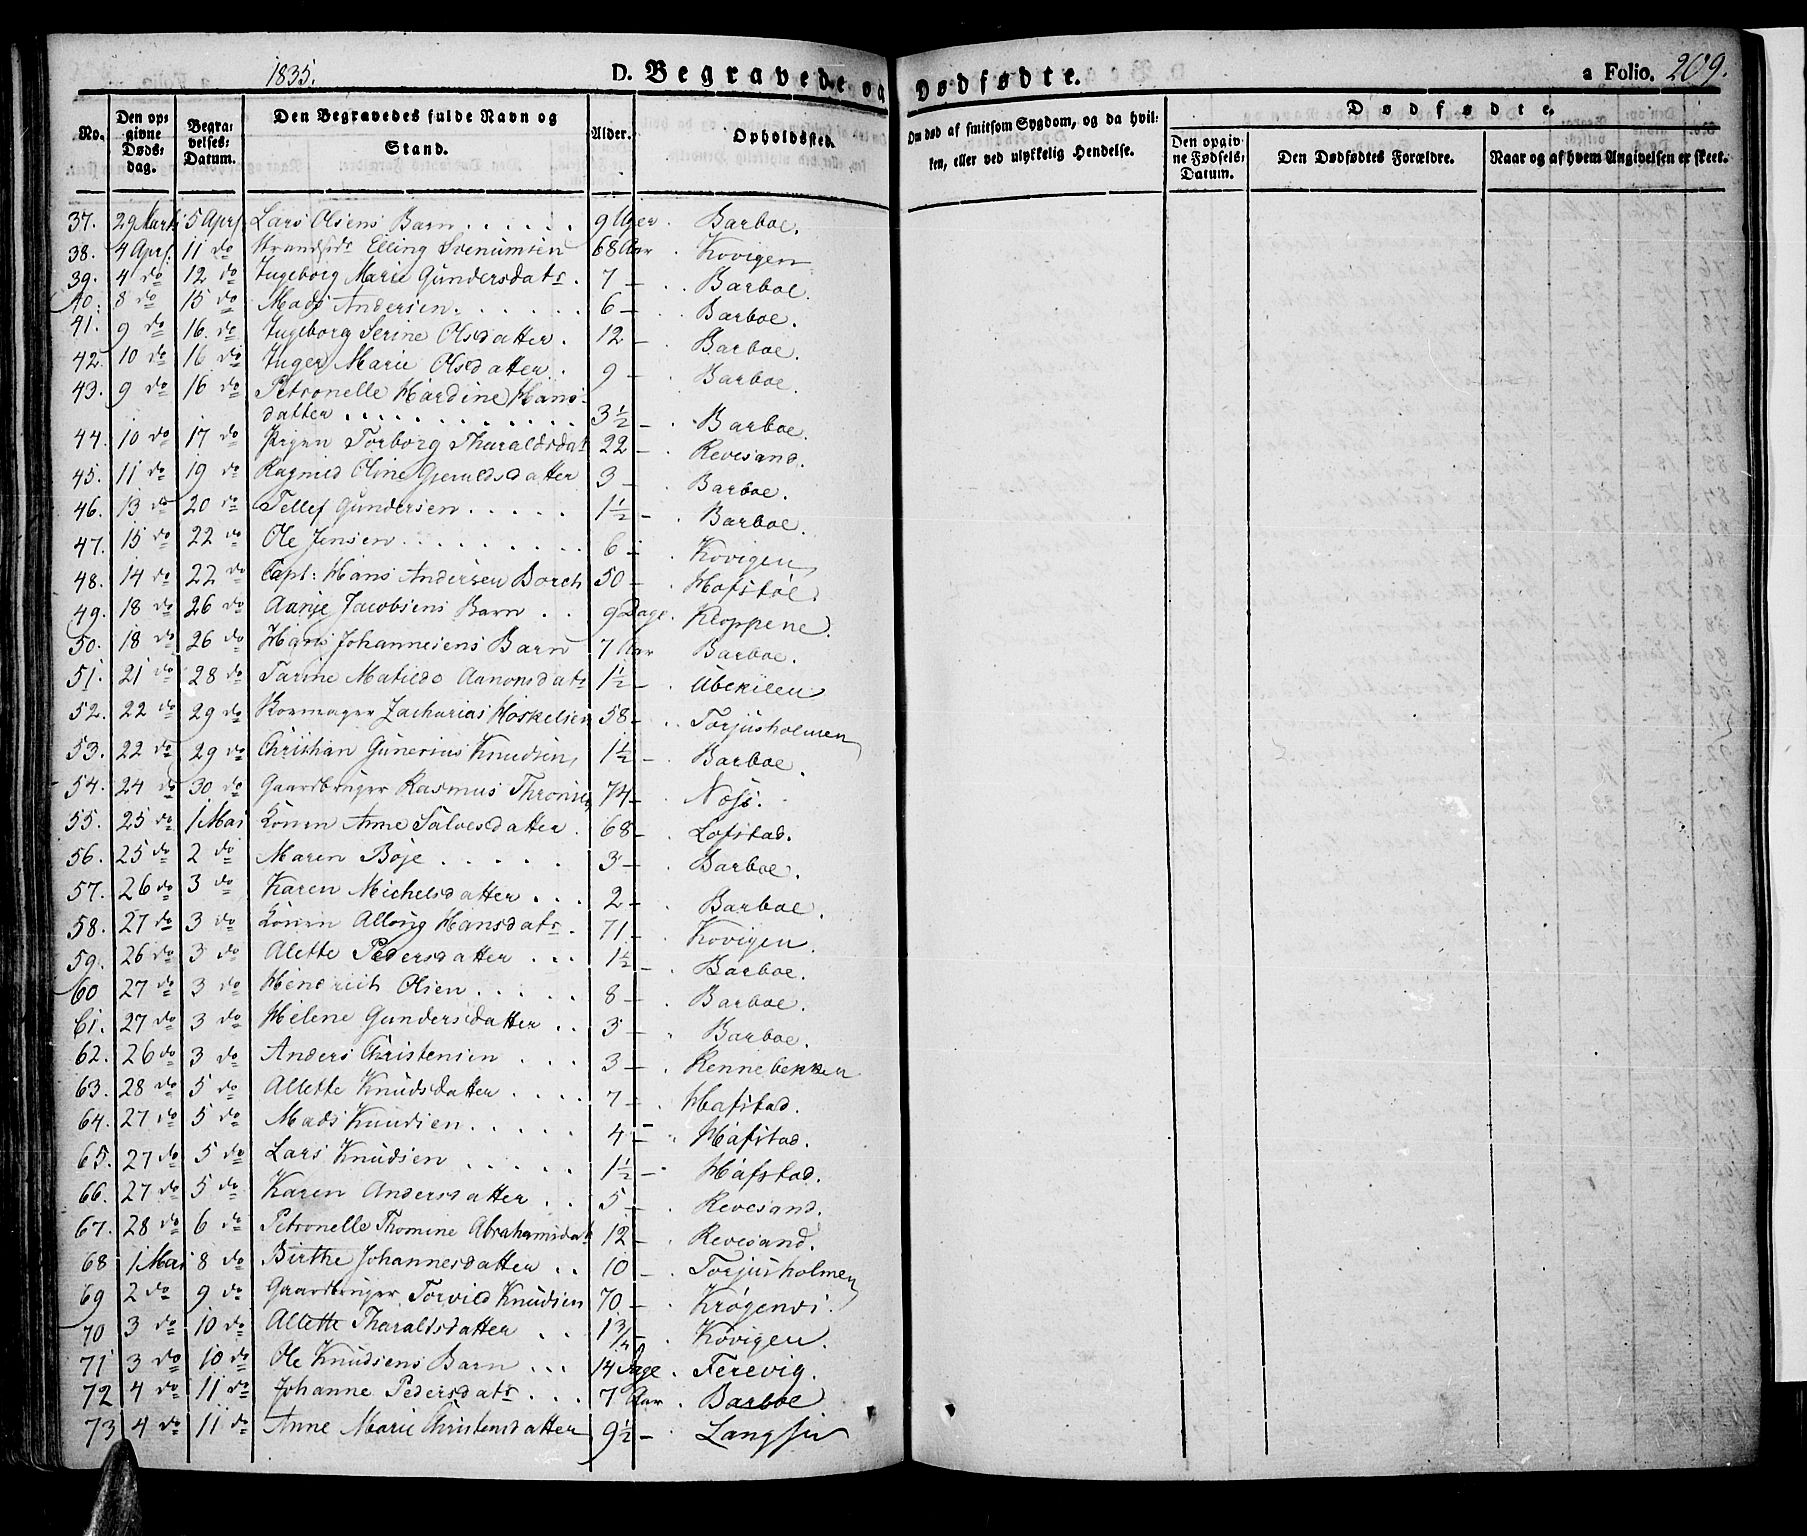 1835.
D. Begravede og Dødfødte.
a Folio. 209.
No.
Den op=givne Døds=dag.
Begra=velses=Datum.
Den Begravedes fulde Navn og Stand.
Alder.
Opholdssted.
Om død af smitsom Sygdom, og da hvil=ken, eller ved ulykkelig Hendelse.
Dødfødte.
Den opgiv=ne Fødsels=Datum.
Den Dødfødtes Forældre.
Naar og af hvem Angivelsen er skeet.
37. 29 Marti 5 Apr. Lars Olsens Barn 9 Uger Barboe.
38. 4 Apr. 11 do Elling Svenumsen 68 Aar Kovigen
39. 4 do 12 do Ingeborg Marie Gundersdatr. 7 - Barboe.
40. 8 do 15 do Mads Andersen 6 - Barboe.
41. 9 do 16. do Ingeborg Serine Olsdatter. 12 - Barboe.
42. 10 do 16 do Inger Marie Olsdatter. 9 - Barboe.
43. 9 do 16 do Petronelle Hardine Hans=
datter 3½ - Barboe.
44. 10 do 17 do Torborg Tharaldsdat 22 - Revesand.
45. 11 do 19 do Ragnild Oline Gjeruldsdatter 3 - Barboe.
46. 13 do 20 do Tellef Gundersen 1½ - Barboe.
47. 15 do 22 do Ole Jensen 6 - Kovigen
48. 14 do 22 do Capt: Hans Andersen Borch 50 - Hofstøl.
49. 18 do 26 do Aanje Jacobsens Barn 9 Dage. Kloppene.
50. 18 do 26 do Hans Johannesens Barn 7 Aar Barboe.
51. 21 do 28 do Tarine Matilde Aanonsdatr 1½ - Ubekilen
52. 22 do 29 do Zacharias Hoskelsen 58 - Torjusholmen
53. 22 do 29 do Christian Gunerius Knudsen, 1½ - Barboe.
54. 24 do 30 do Gaardbruger Rasmus Thronsen 74 -
55. 25 do 1 Mai Konen Anne Salvesdatter. 68 - Lofstad.
56. 25 do 2 do Maren Boje 3 - Barboe.
57. 26 do 3 do Karen Michelsdatter 2 - Barboe.
58. 27 do 3 do Konen Alloug Hansdatr. 71 - Kovigen.
59. 26 do 3 do Alette Pedersdatter 1½ - Barboe.
60 27 do 3 do Hendrich Olsen 8 - Barboe.
61. 27 do 3 do Helene Gundersdatter 3 - Barboe.
62. 26 do 3 do Anders Christensen 3 - Rennebekken
63. 28 do 5 do Allette Knudsdatter 7 - Hafstad.
64. 27 do 5 do Mads Knudsen 4 - Hafstad.
65. 27 do 5 do Lars Knudsen 1½ - Hafstad.
66. 27 do 5 do Karen Andersdatter 5 - Revesand.
67. 28 do 6 do Petronelle Thomine Abrahamsdat 12 - Revesand.
68 1 Mai 8 do Birthe Johannesdatter 10 - Torjusholmen
69 2 do 9 do Gaardbruger Torvild Knudsen 70 - Krøgenes.
70 3 do 10 do Allette Tharaldsdatter 1¾ - Kovigen.
71 3 do 10 do Ole Knudsens Barn 14 Dage. Ferevig.
72 4 do 11 do Johanne Pedersdatr. 7 Aar. Barboe
73 4 do 11 do Anne Marie Christensdatter 9½ -